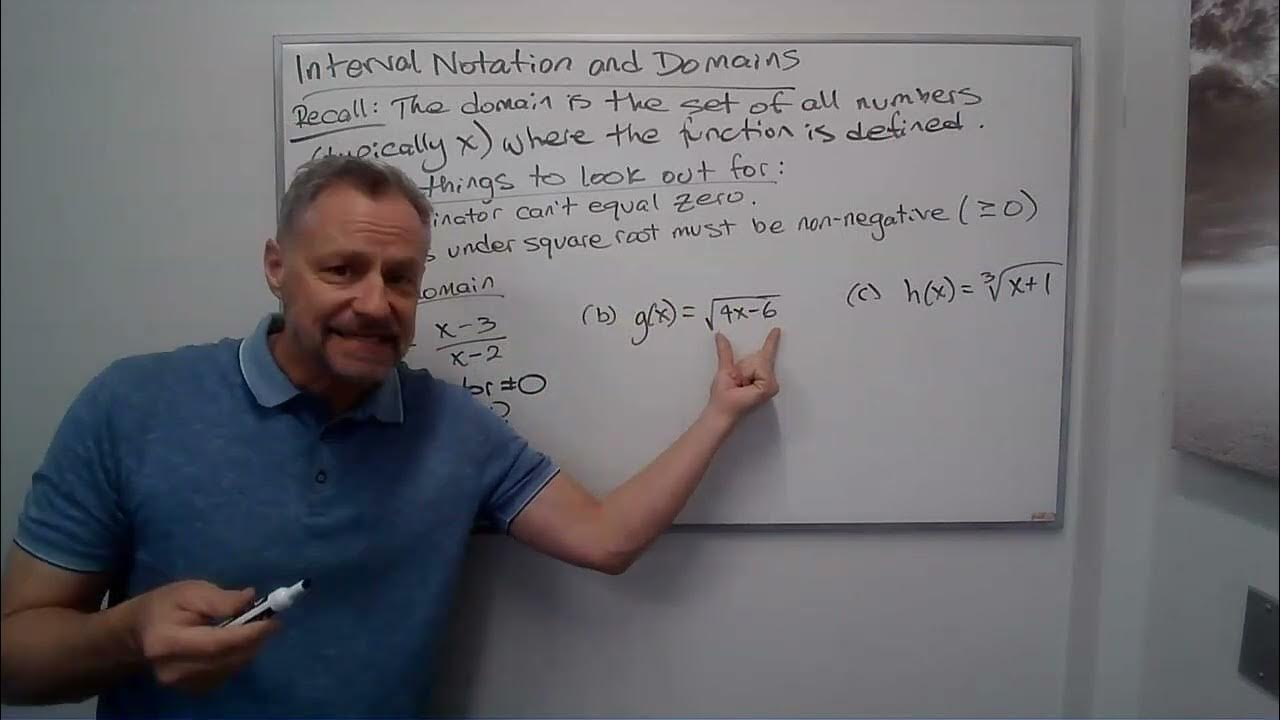 Interval Notation and Domains
Recall: The domain is the set of all numbers
(typically x) where the function is defined.
things to look out for:
can't equal zero.
under square root must be non-negative (≥0)
(b) g(x) = √4x-6
(c) h(x) = ∛x+1
x-3
x-2
≠0